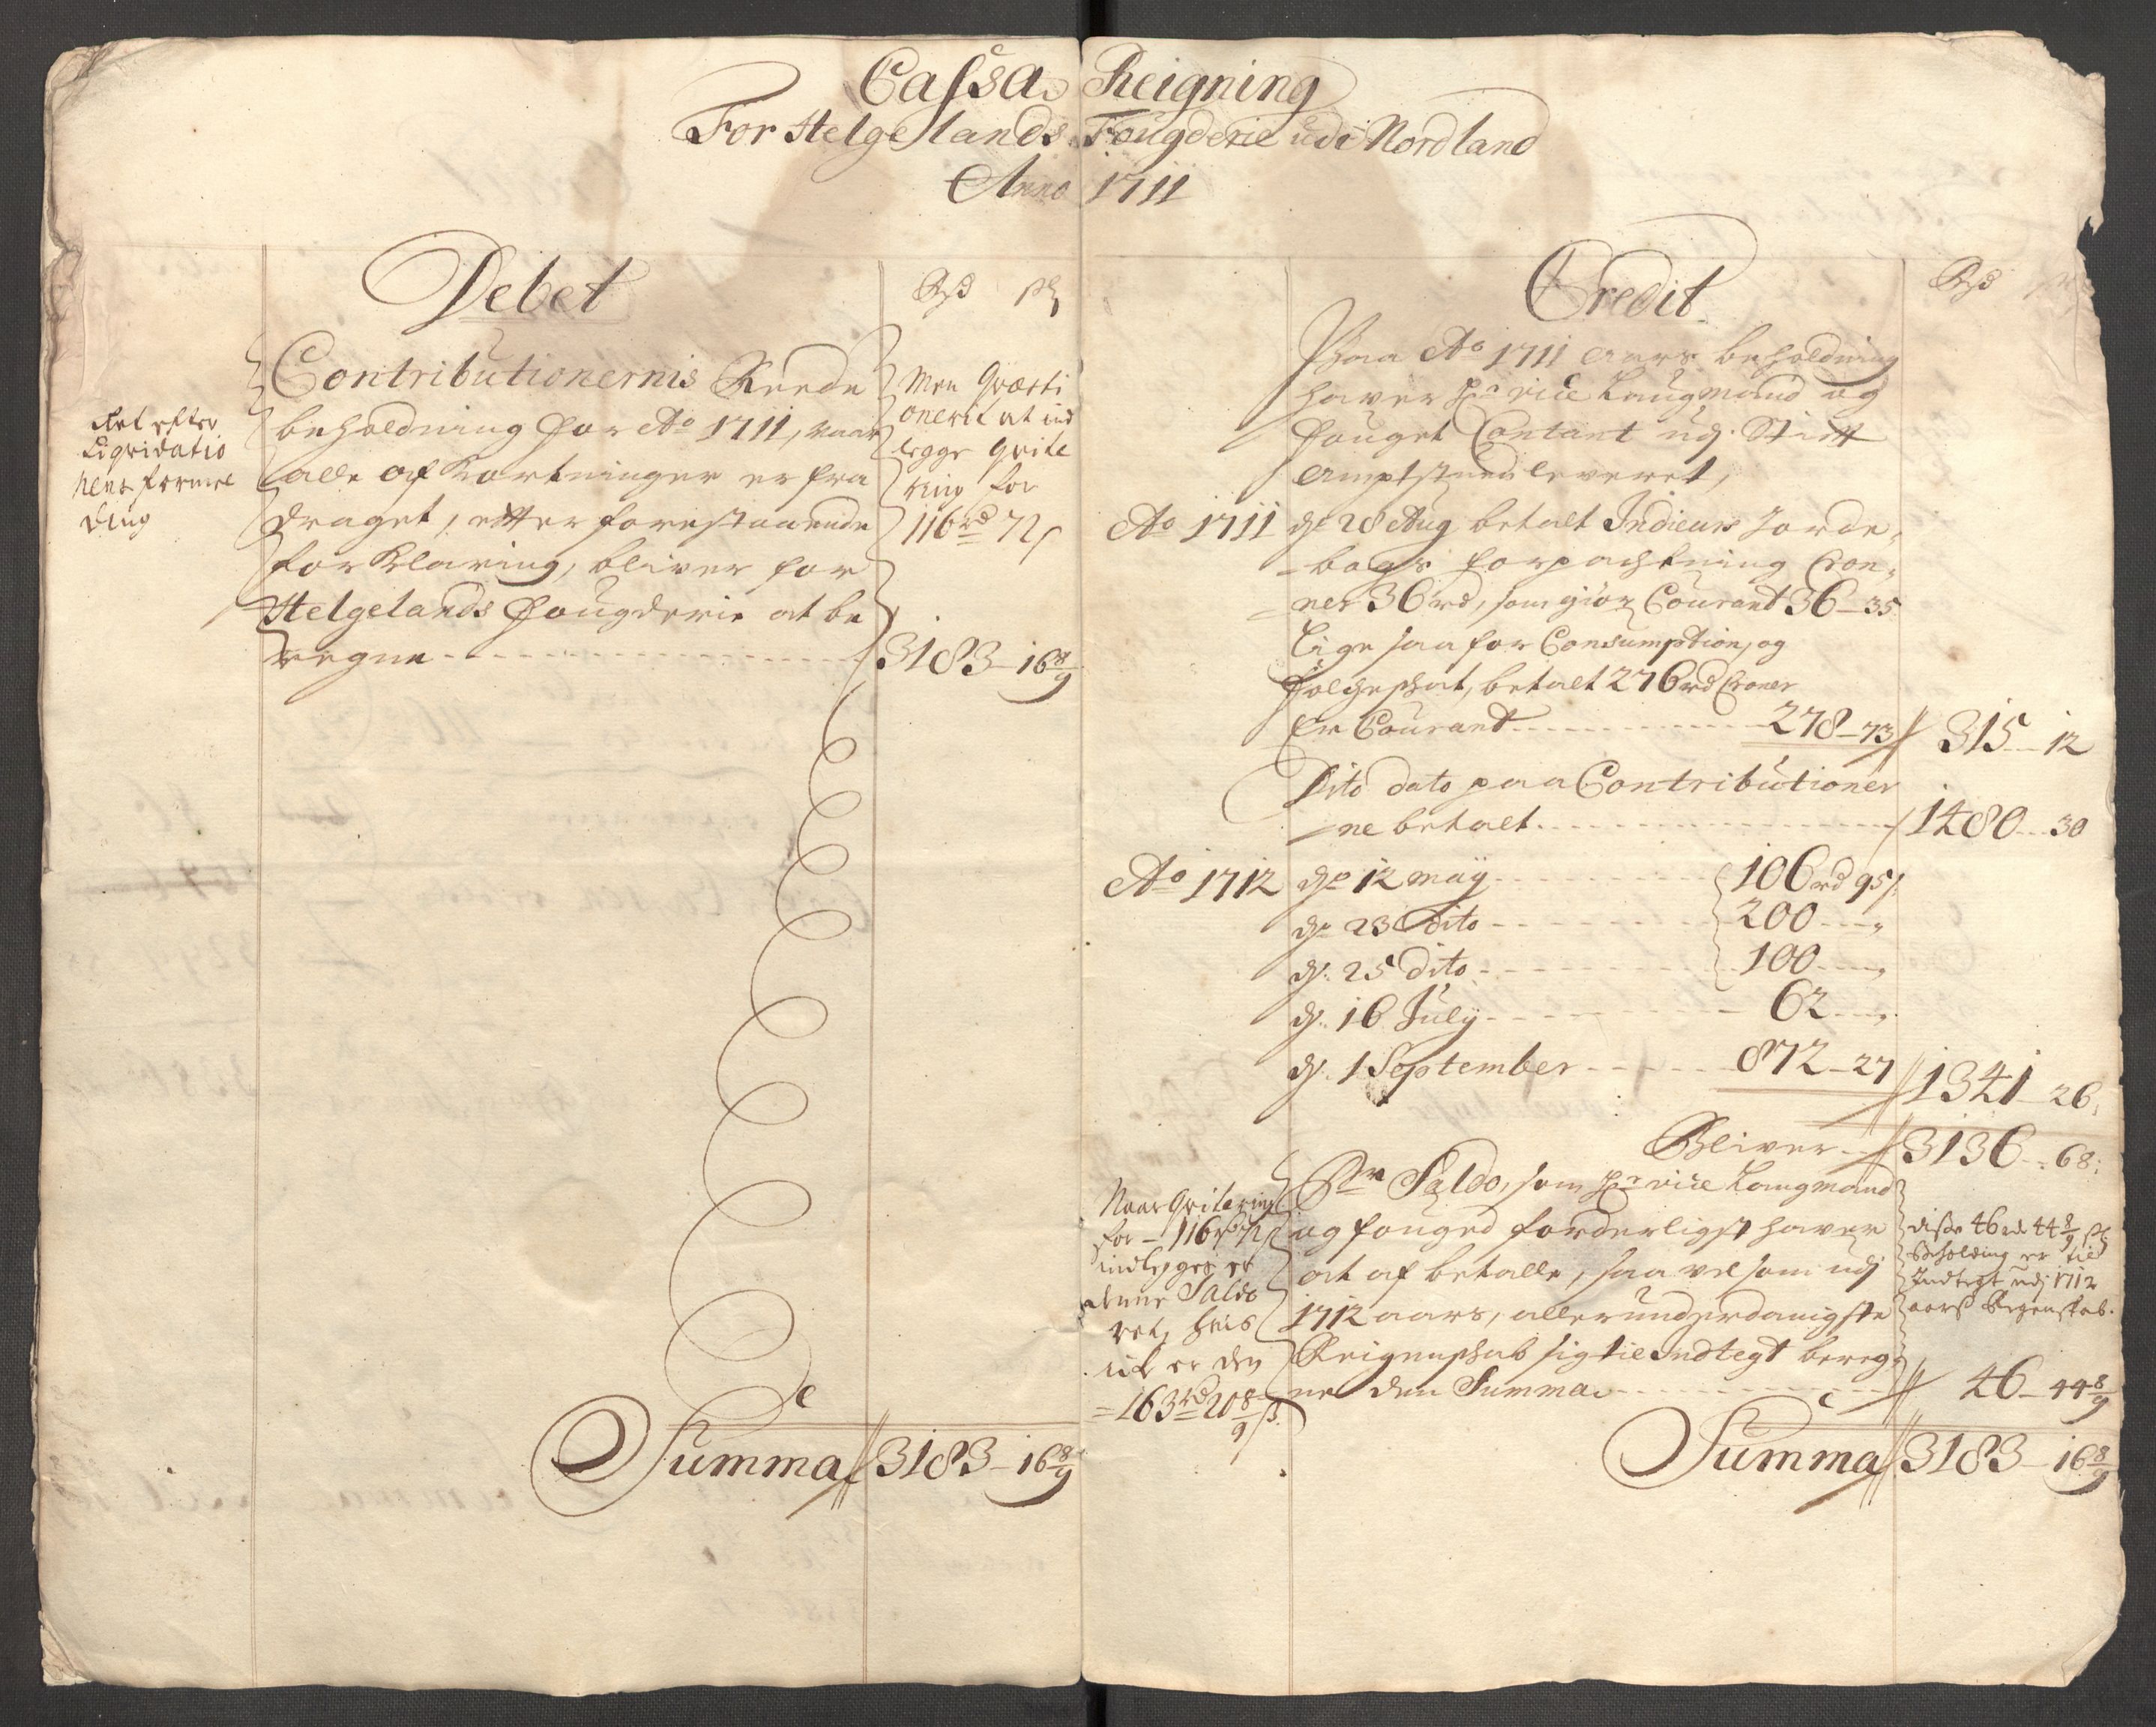 Cassa Reigning
For Helgelands Fougderie udi Nordland
Anno 1711
Debet
Rd ſß
Contributionernis Reede
beholdning for Ao 1711, naar
alle af Kortninger er fra
draget, effter forestaaende
forklaring, bliver for
Helgelands Fougderie at be
regne 3183 - 16 8/9
Ret efter
Liqvidatio
nens formel
ding
Men Qvæsti
oneret at ind
legge qvite
ring for
116 rd 72 ſ
Summa 3183 - 16 8/9
Credit
Rd
Paa Ao 1711 aars beholdning
haver Hr vice Laugmand og
fouget Contant udj Stifft
Amptstuen leveret,
Ao 1711 d. 28 Aug betalt Indieurs Jorde-
bogs forpachtning Cron-
ner 36 rd, som giør Courant 36 - 35
Lige saa for Consumption, og
folcheschat, betalt 276 rd Croner
Er Courant 278 - 73 315 - 12
Dito dato paa Contributioner
ne betalt 1480 - 30
Ao 1712 d. 12 may 106 rd 95 ſ
d. 23 dito 200
d. 25 dito 100
d. 16 July 62
d. 1 September 872 - 27 1341 - 26
Bliver 3136 - 68
Pr Saldo, som Hr vice Laugmand
og fouged forderligst haver
at af betalle, saa vel som udj
1712 aars, allerunderdanigste
Reigenschab sig til Indtegt bereg-
ne den Summa 46 - 44 8/9
Naar Qvitering
for - 116 rd 72 ß
indlegges er
denne Saldo
ret, hvis
ick er den
= 163 rd 20 8/9 ß.
disse 46 rd 44 8/9 ſß
Beholding er til
Indtegt udj 1712
aars Regenskab.
Summa 3183 - 16 8/9